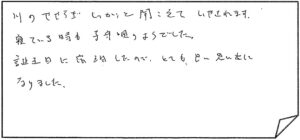 川のせせらぎ しっかりと 聞こえて いやされます。
寝ている時も 子守唄のようでした。
誕生日に宿泊したので、とても 良い思い出に
なりました。